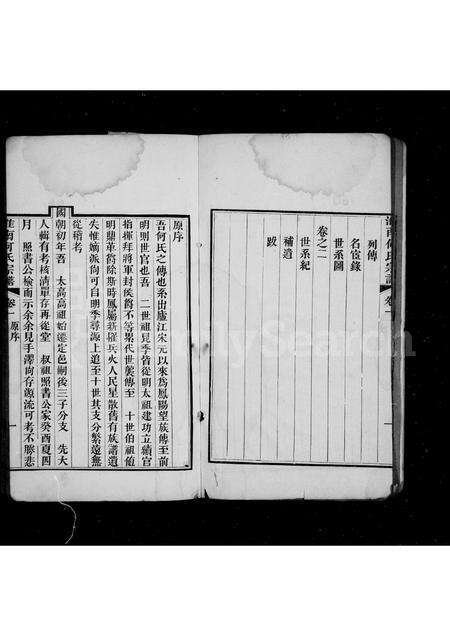 淮南何氏宗譜 卷一
列傳
名宦錄
世系圖
卷之二
世系紀
補遺
跋
原序
吾何氏之傳也系出廬江宋元以來為鳳陽望族傳至前
明則世官也吾 二世祖晃季皆從明太祖建功立績官
指揮拜將軍封侯爵不等累代世美傳至 十世伯祖
明鼎革爵除斯時鳳屬新罹兵火人民星散舊有族譜遺
失惟嫡派尚可自明季尋源上追至十世其支分繁遠無
從稽考
國朝初年吾 太高高祖始遷定邑嗣後三子分支 先大
人輯有考核清單存再從堂 叔祖照書公家癸酉夏四
月 照書公檢南示余余見手澤尚存源流可考不勝悲
淮南何氏宗譜 卷一 原序 一